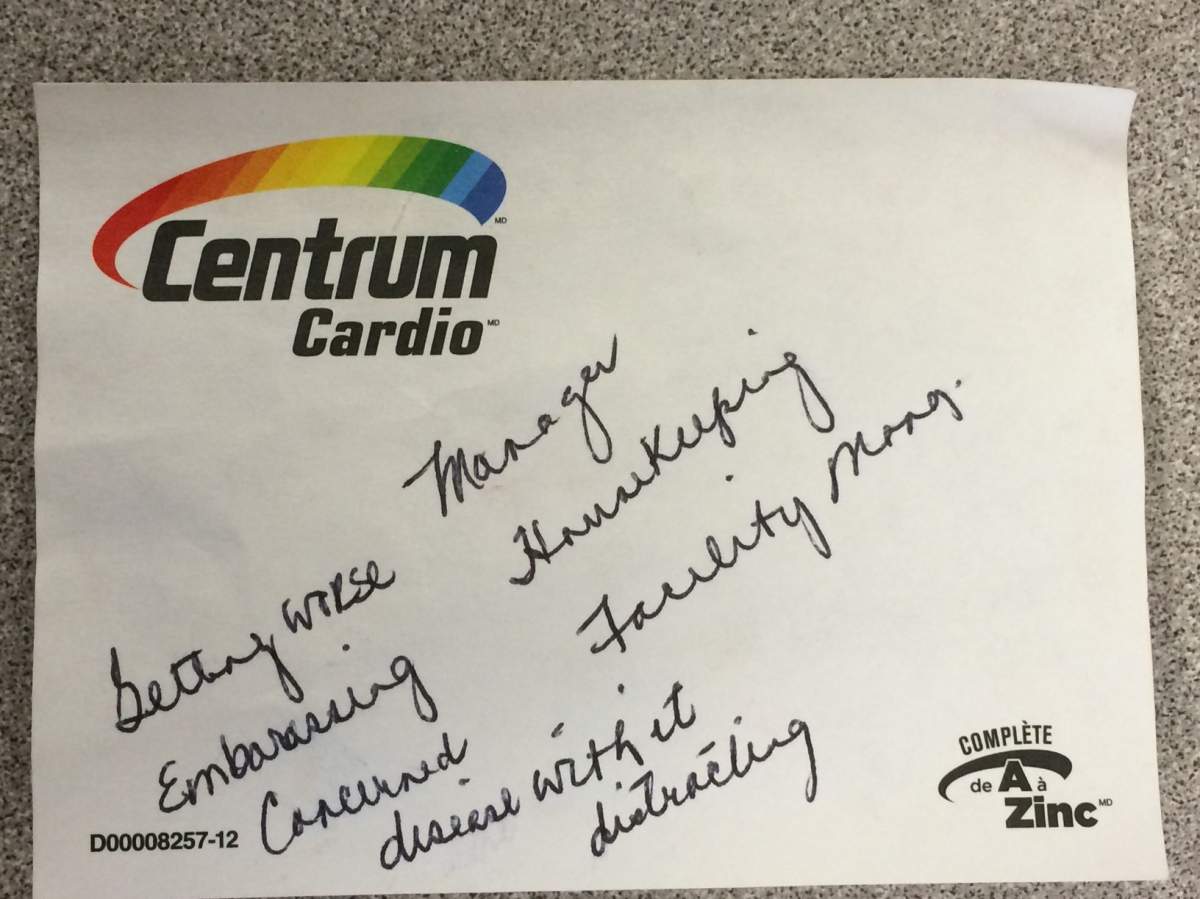 Centrum MD
Cardio MD
Manager
Housekeeping
Facility Mang.
Getting worse
Embarassing
Concerned
disease with it
distracting
D00008257-12
COMPLÈTE
de A à
Zinc MD